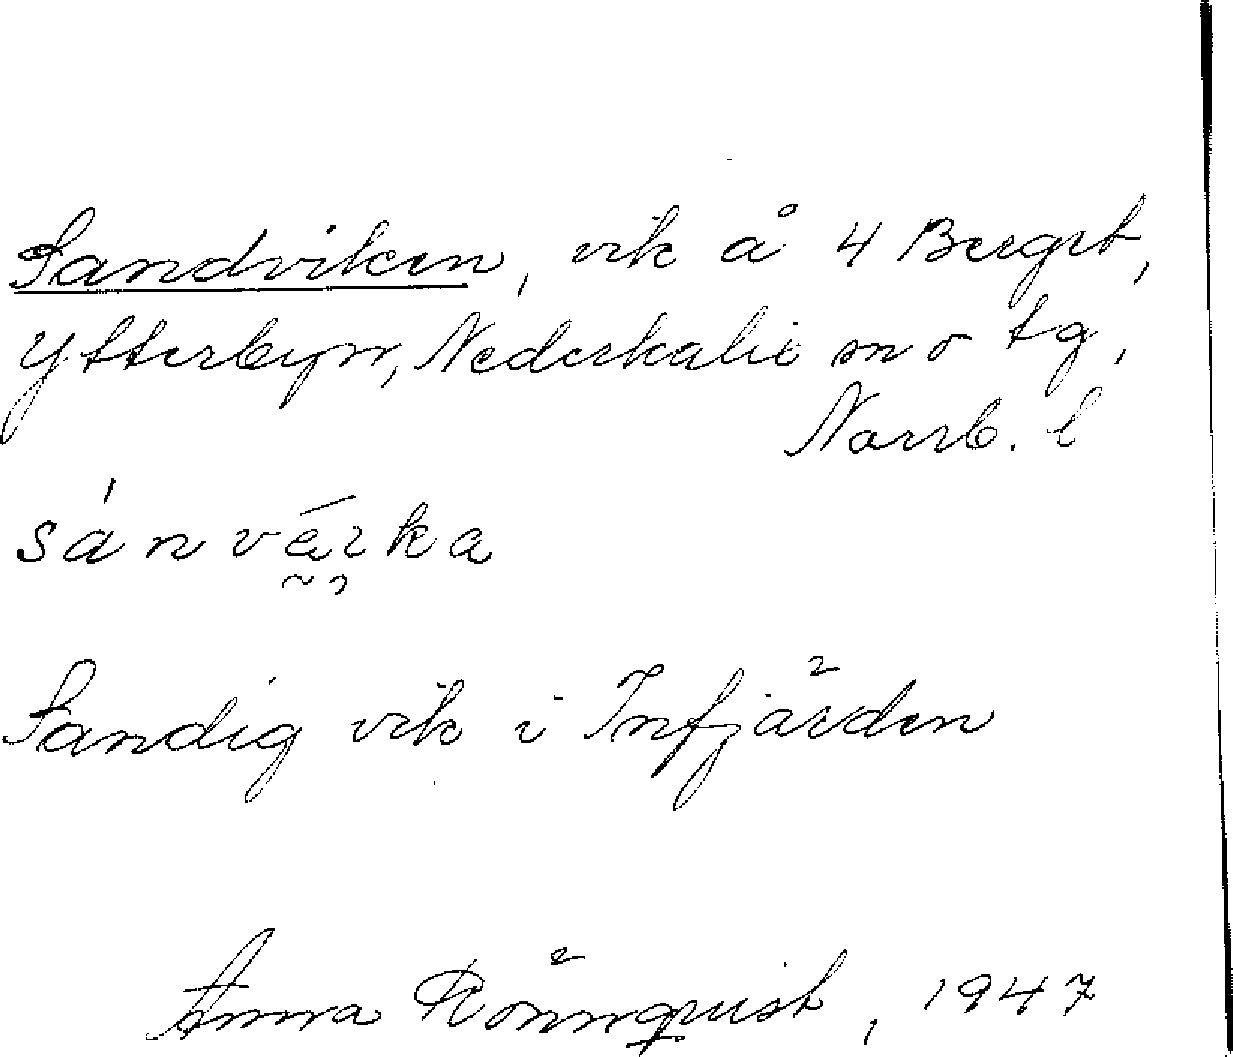 Sandviken, vik å 4 Bergst,
Ytterbyn, Nederkalix sn o tg,
Norrb. l
sánvä́ika
Sandig vik i Infjärden
Anna Rönnqvist, 1947